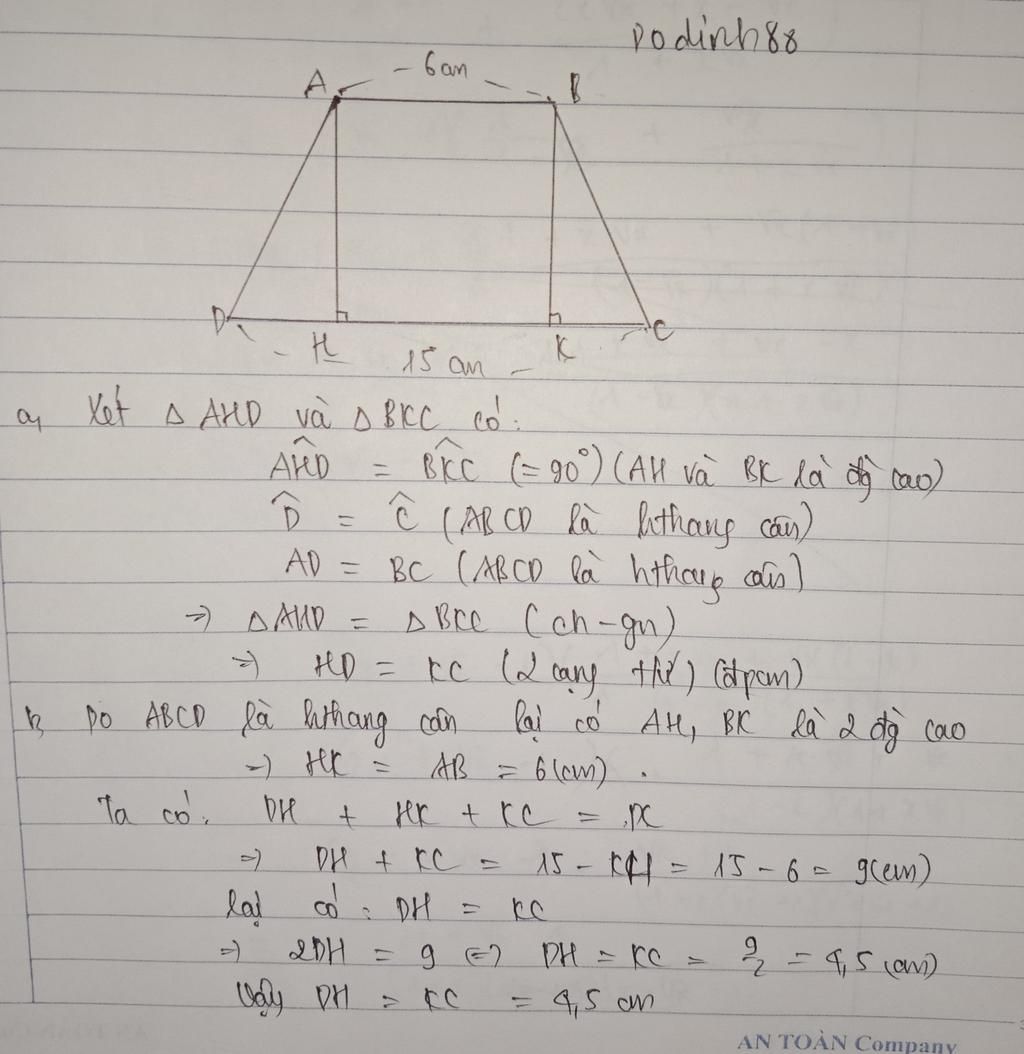 Dodinh88
A - 6cm - B
D H K C
- 15 cm -
a, Xét Δ AHD và Δ BKC có:
AHD = BKC (= 90°) (AH và BK là đg cao)
D = C (ABCD là hthang cân)
AD = BC (ABCD là hthang cân)
=> Δ AHD = Δ BKC (ch-gn)
=> HD = KC (2 cạng tứ) (đpcm)
b, Do ABCD là hthang cân lại có AH, BK là 2 đg cao
=> HK = AB = 6(cm).
Ta có: DH + HK + KC = DC
=> DH + KC = 15 - KH = 15 - 6 = 9(cm)
lại có: DH = KC
=> 2DH = 9 <=> DH = KC = 9/2 = 4,5 (cm)
Vậy DH = KC = 4,5 cm
AN TOÀN Company